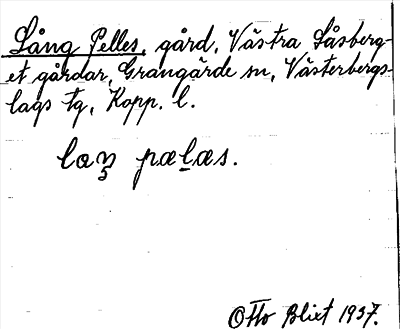 Lång Pelles, gård, Västra Låsberg-
et gårdar, Grangärde sn, Västerbergs-
lags tg, Kopp. l.
laŋ pælæs.
Otto Blixt 1937.